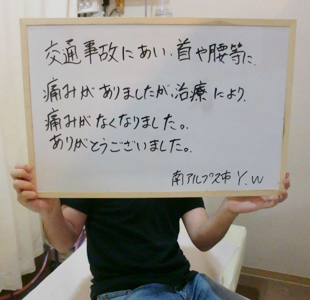 交通事故にあい、首や腰等に、
痛みがありましたが、治療により、
痛みがなくなりました。
ありがとうございました。
南アルプス市 Y.W